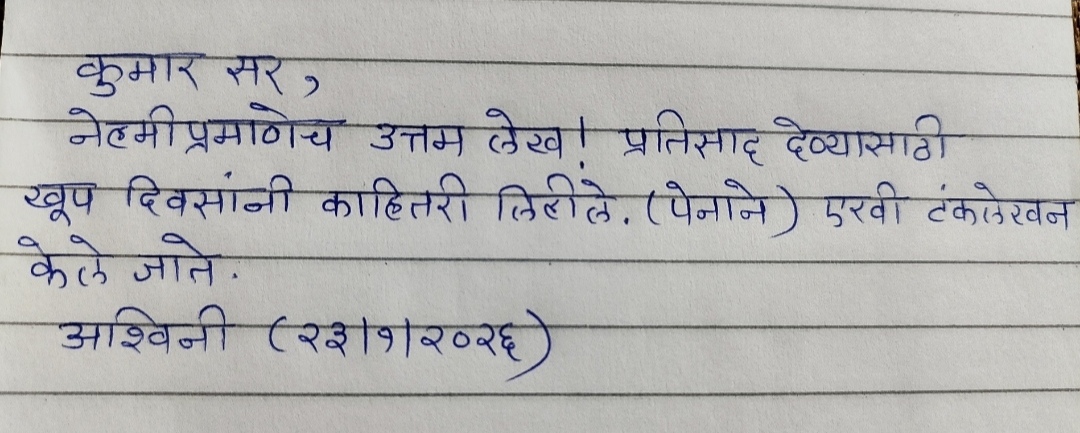 कुमार सर,
नेहमीप्रमाणेच उत्तम लेख! प्रतिसाद देण्यासाठी
खूप दिवसांनी काहितरी लिहीले. (पेनाने) एरवी टंकलेखन
केले जाते.
अश्विनी (२३|१|२०२६)